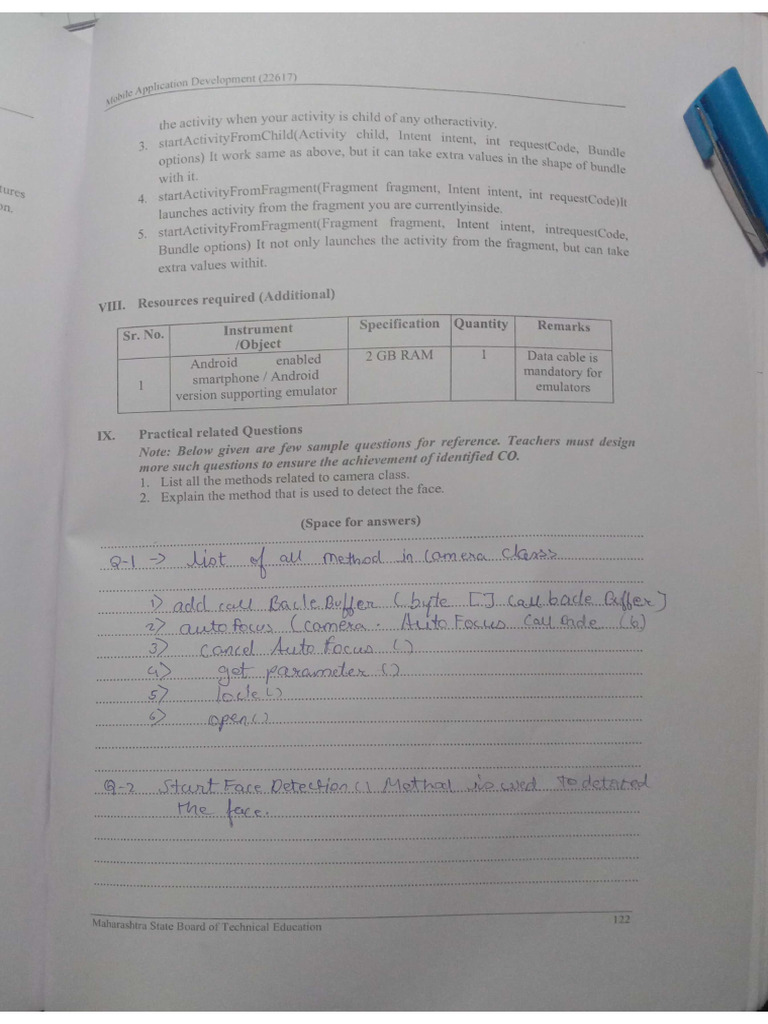 Mobile Application Development (22617)
the activity when your activity is child of any otheractivity.
3. startActivityFromChild(Activity child, Intent intent, int requestCode, Bundle
options) It work same as above, but it can take extra values in the shape of bundle
with it.
4. startActivityFromFragment(Fragment fragment, Intent intent, int requestCode)It
launches activity from the fragment you are currentlyinside.
5. startActivityFromFragment(Fragment fragment, Intent intent, intrequestCode,
Bundle options) It not only launches the activity from the fragment, but can take
extra values withit.
tures
on.
VIII. Resources required (Additional)
Sr. No. Instrument /Object Specification Quantity Remarks
1 Android enabled smartphone / Android version supporting emulator 2 GB RAM 1 Data cable is mandatory for emulators
IX. Practical related Questions
Note: Below given are few sample questions for reference. Teachers must design
more such questions to ensure the achievement of identified CO.
1. List all the methods related to camera class.
2. Explain the method that is used to detect the face.
(Space for answers)
Q-1 → list of all method in camera class
1) add call Back Buffer (byte [] callback Buffer]
2) auto focus (camera. Auto Focus Call (b)
3) cancel Auto Focus ()
4) get parameter ()
5) lock()
6) open()
Q-2 Start Face Detection() Method is used to detared
the face.
Maharashtra State Board of Technical Education
122